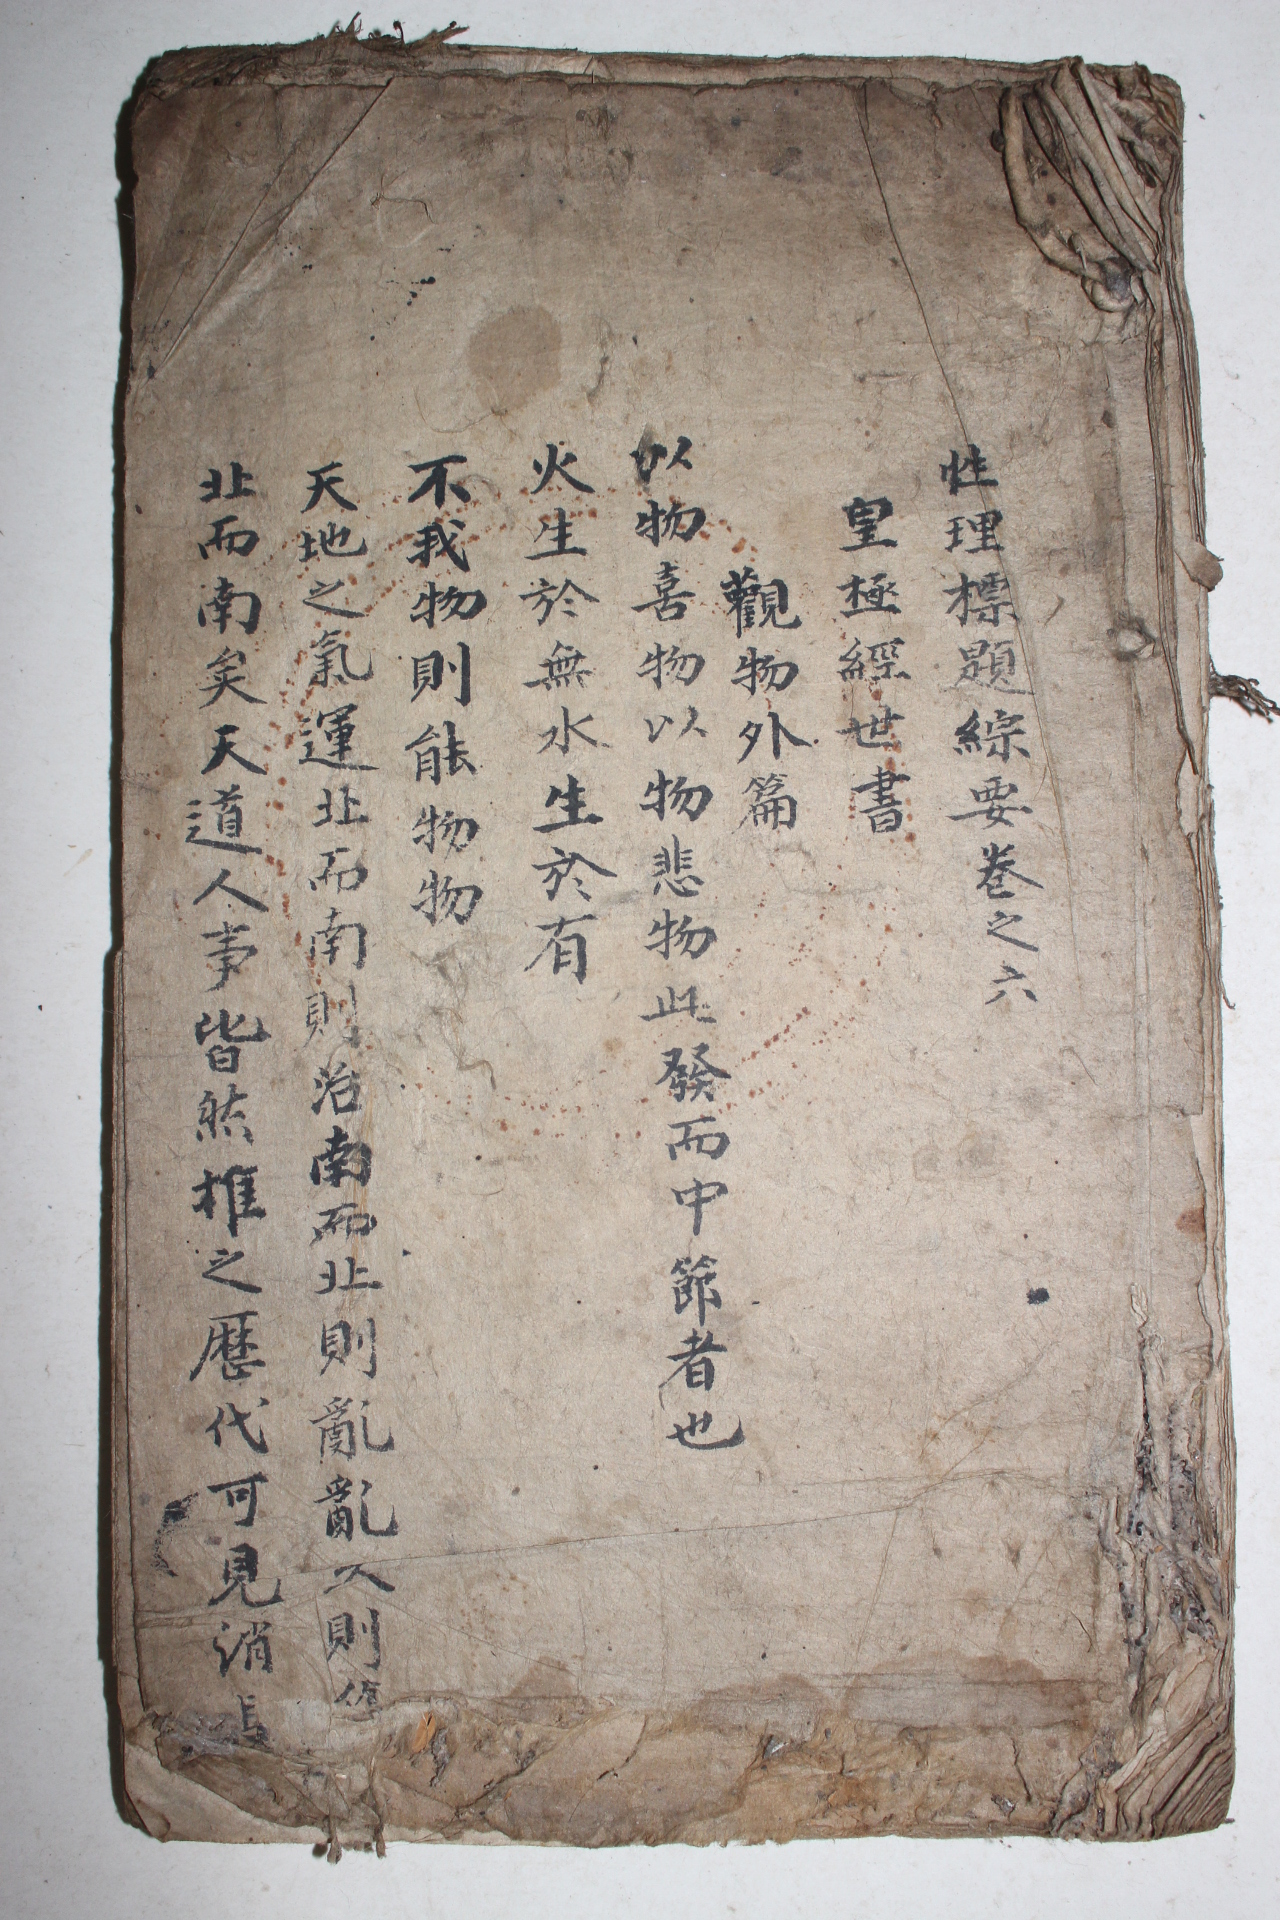 性理標題綜要卷之六
皇極經世書
觀物外篇
以物喜物以物悲物此發而中節者也
火生於無水生於有
不我物則能物物
天地之氣運北而南則治南而北則亂亂久則
北而南矣天道人事皆然推之歷代可見消